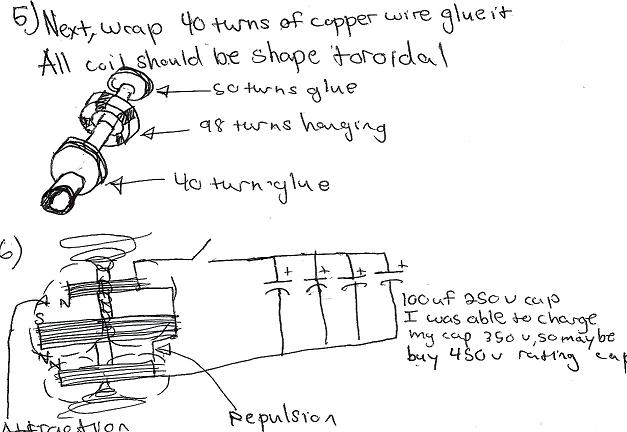 5) Next, wrap 40 turns of copper wire glue it
All coil should be shape toroidal
50 turns glue
98 turns hanging
40 turn glue
6)
+ + + +
A N
S
N
N
100uf 250v cap
I was able to charge
my cap 350v, so maybe
buy 450v rating cap
Attraction
Repulsion